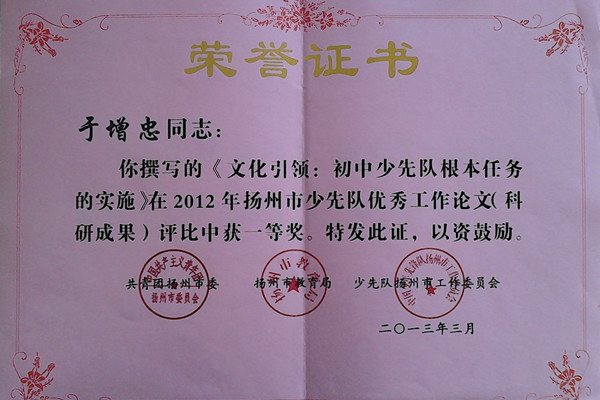 荣誉证书
于增忠同志：
你撰写的《文化引领：初中少先队根本任务
的实施》在2012年扬州市少先队优秀工作论文（科
研成果）评比中获一等奖。特发此证，以资鼓励。
共青团扬州市委 扬州市教育局 少先队扬州市工作委员会
中国共产主义青年团
扬州市委员会
扬州市教育局
中国少年先锋队扬州市工作委员会
二〇一三年三月